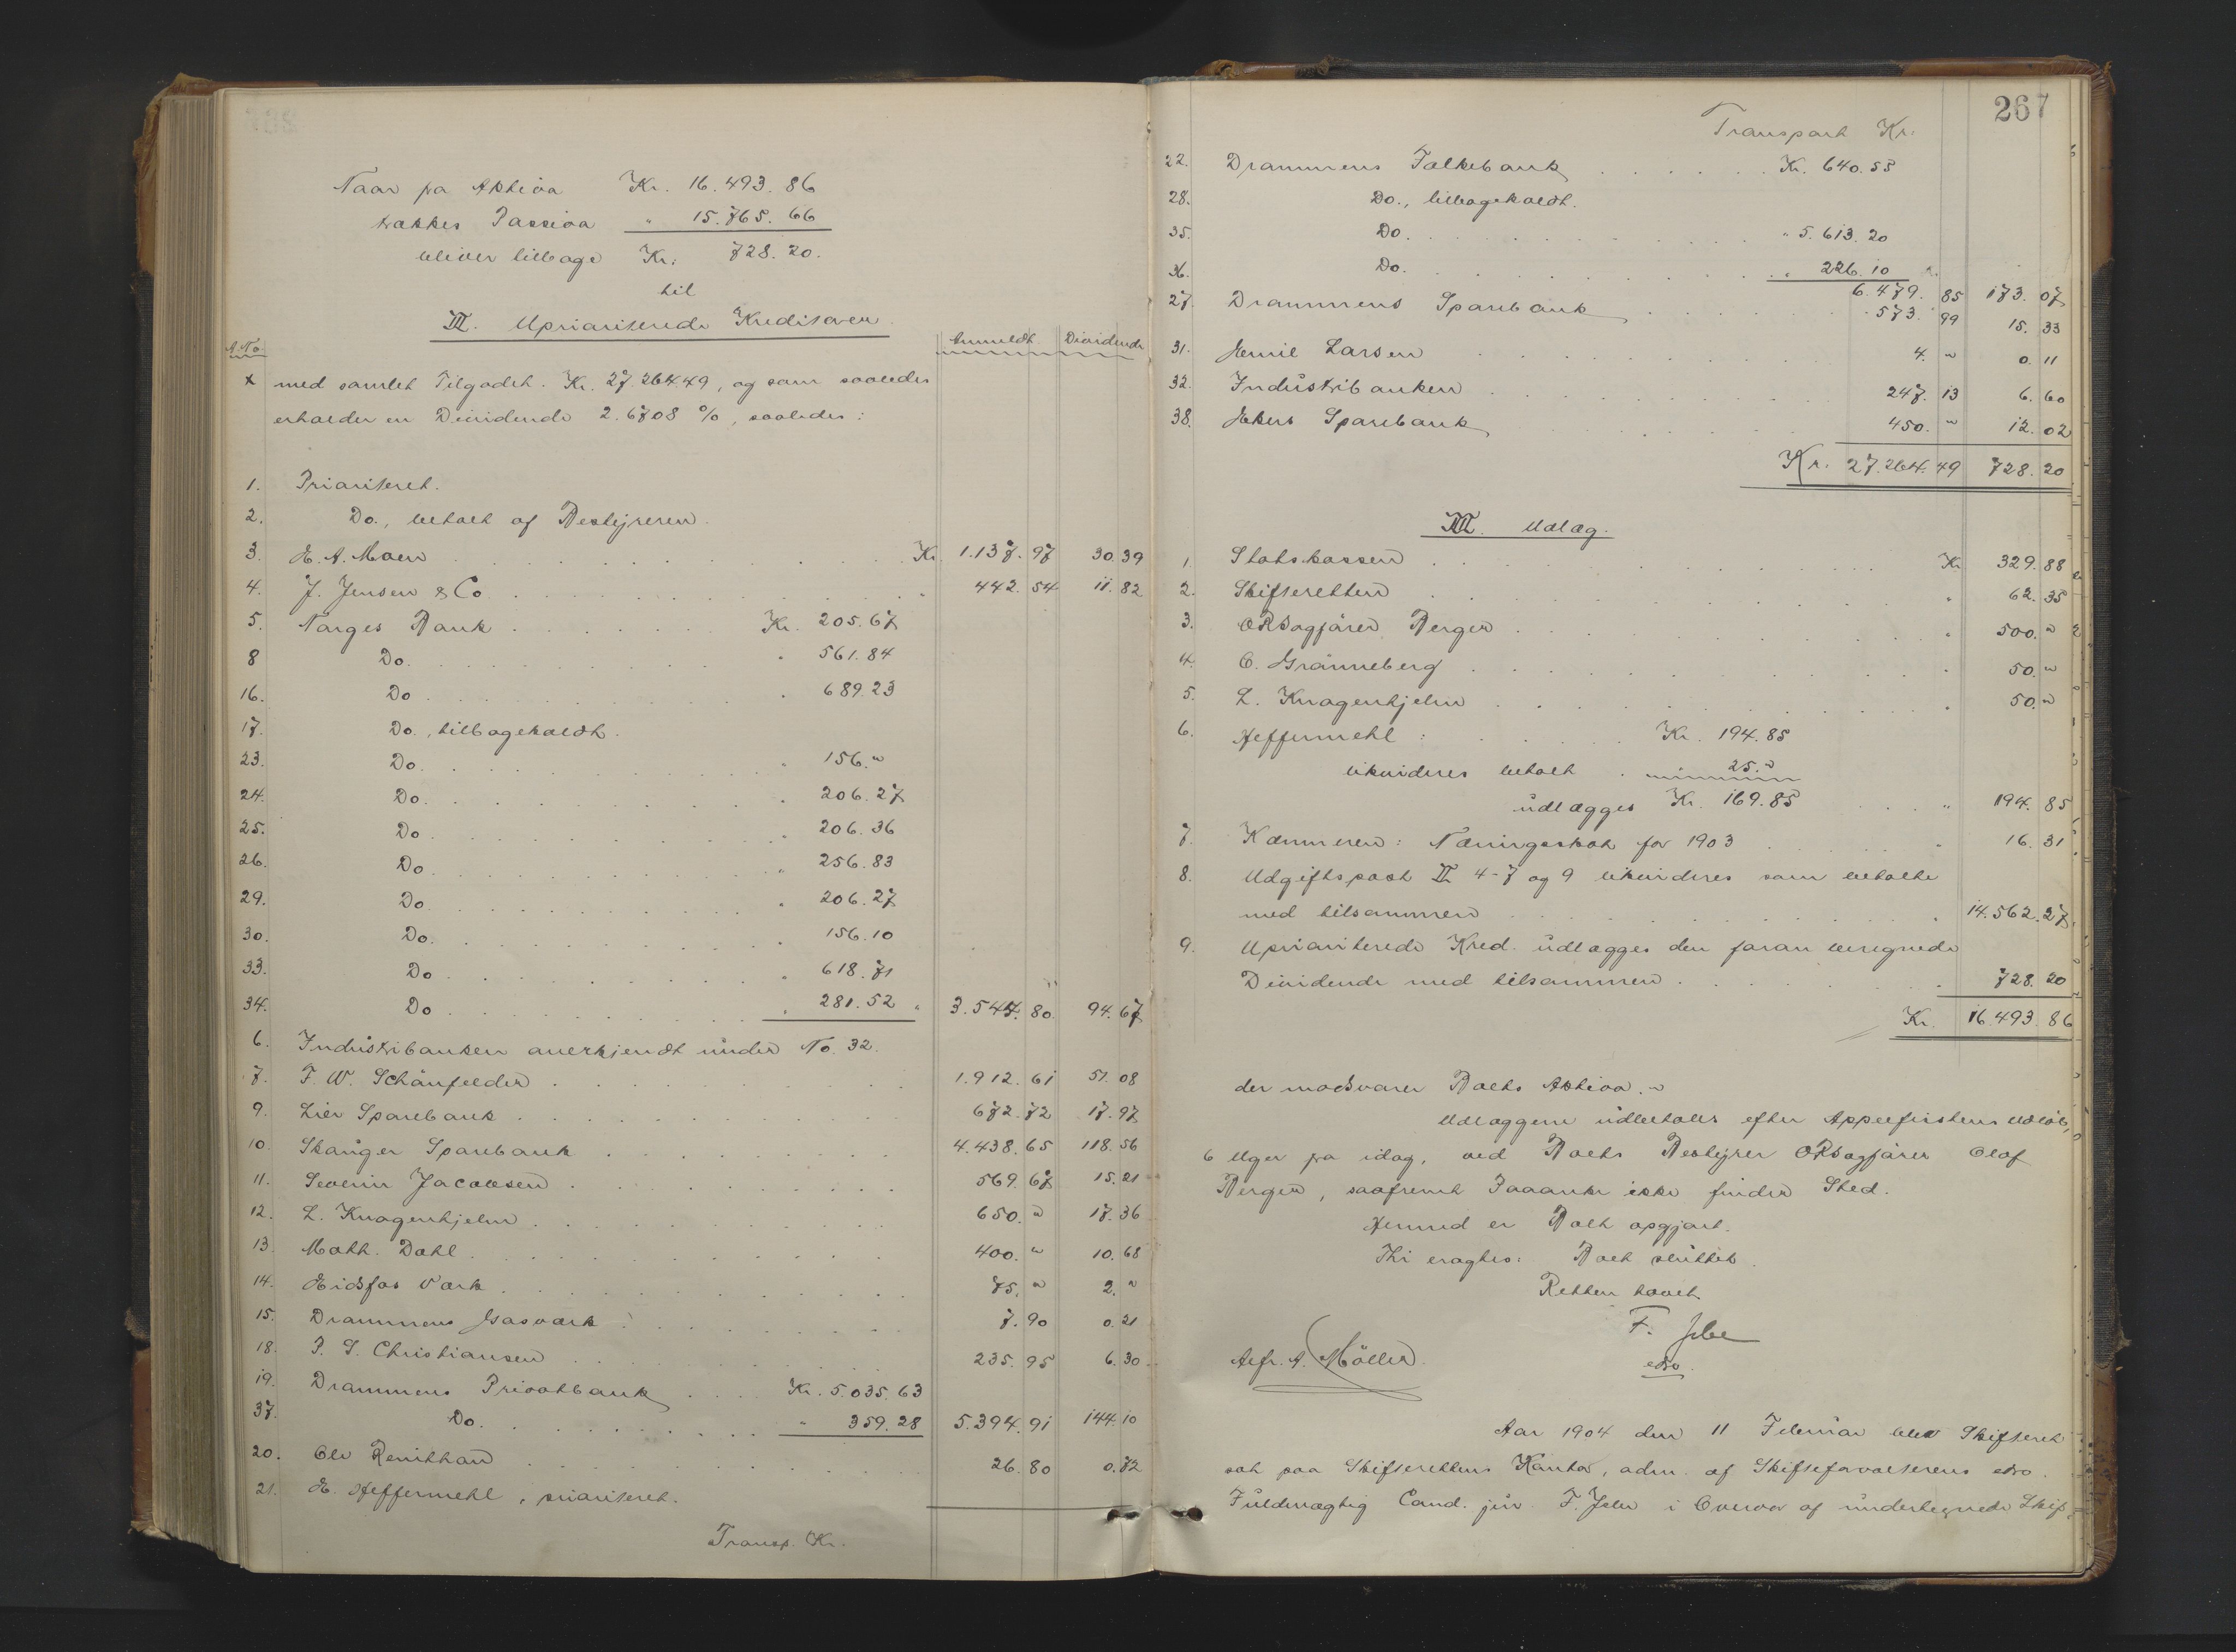 Naar fra Aktiva Kr. 16.493.86
trækkes Passiva " 15.765.66
bliver tilbage Kr. 728.20.
til
III. Uprioriterede Kreditorer.
A. No. Anmeldt. Dividende
x med samlet Tilgodeh. Kr. 27.264.49, og som saaledes
erholder en Dividende 2.6708 %, saaledes:
1. Prioriteret.
2. Do., betalt af Bestyreren.
3. E. A. Moen Kr. 1.137.97 30.39
4. J. Jensen & Co. " 442.54 11.82
5. Norges Bank Kr. 205.67
8 Do. " 561.84
16. Do " 689.23
17. Do., tilbagekaldt.
23. Do. " 156."
24. Do. " 206.27
25. Do " 206.36
26. Do. " 256.83
29. Do. " 206.27
30. Do. " 156.10
33. Do " 618.71
34. Do " 281.52 " 3.544.80 94.67
6. Industribanken anerkjendt under No. 32.
7. F. W. Schönfelder 1.912.61 51.08
9. Lier Sparebank 672.72 17.97
10. Skauger Sparebank 4.438.65 118.56
11. Severin Jacobsen 569.67 15.21
12. L. Knagenhjelm 650." 17.36
13. Math. Dahl 400." 10.68
14. Eidsfos Værk 75." 2."
15. Drammens Gasværk 7.90 0.21
18. P. S. Christiansen 235.95 6.30
19. Drammens Privatbank Kr. 5.035.63
37. Do. " 359.28 5.394.91 144.10
20. Ole 26.80 0.72
21. E. Heffermehl, prioriteret.
Transp. Kr.
267
Transport Kr.
22. Drammens Folkebank Kr. 640.55
28. Do., tilbagekaldt.
35. Do. " 5.613.20
36. Do. " 226.10 6.479.85 173.07
27. Drammens Sparebank 573.99 15.33
31. Emil Larsen 4." 0.11
32. Industribanken 247.13 6.60
38. Ekers Sparebank 450." 12.02
Kr. 27.264.49 728.20
IV. Udlæg.
1. Statskassen Kr. 329.88
2. Skifteretten " 62.35
3. ORSagfører Berger " 500."
4. C. Grønneberg 50."
5. L. Knagenhjelm " 50."
6. Heffermehl: Kr. 194.85
likvideres betalt 25."
udlægges Kr. 169.85 " 194.85
7. Kæmneren: Næringsskat for 1903 " 16.31
8. Udgiftspost II 4-7 og 9 likvideres som betalte
med tilsammen " 14.562.27
9. Uprioriterede Kred. udlægges den foran beregnede
Dividende med tilsammen " 728.20
Kr. 16.493.86
der modsvarer Boets Aktiva."
Udlæggene udbetales efter Appelfristens Udløb,
6 Uger fra idag, ved Boets Bestyrer ORSagfører Olaf
Berger, saafremt Paaanke ikke finder Sted.
Hermed er Boet opgjort.
Thi eragtes: Boet sluttet.
Retten hævet
F.
Alfr. A. Möller. edso.
Aar 1904 den 11 Februar blev Skifteret
sat paa Skifterettens Kontor, adm. af Skifteforvalterens edso.
Fuldmægtig Cand. jur. F. i Overvær af undertegnede Skif-